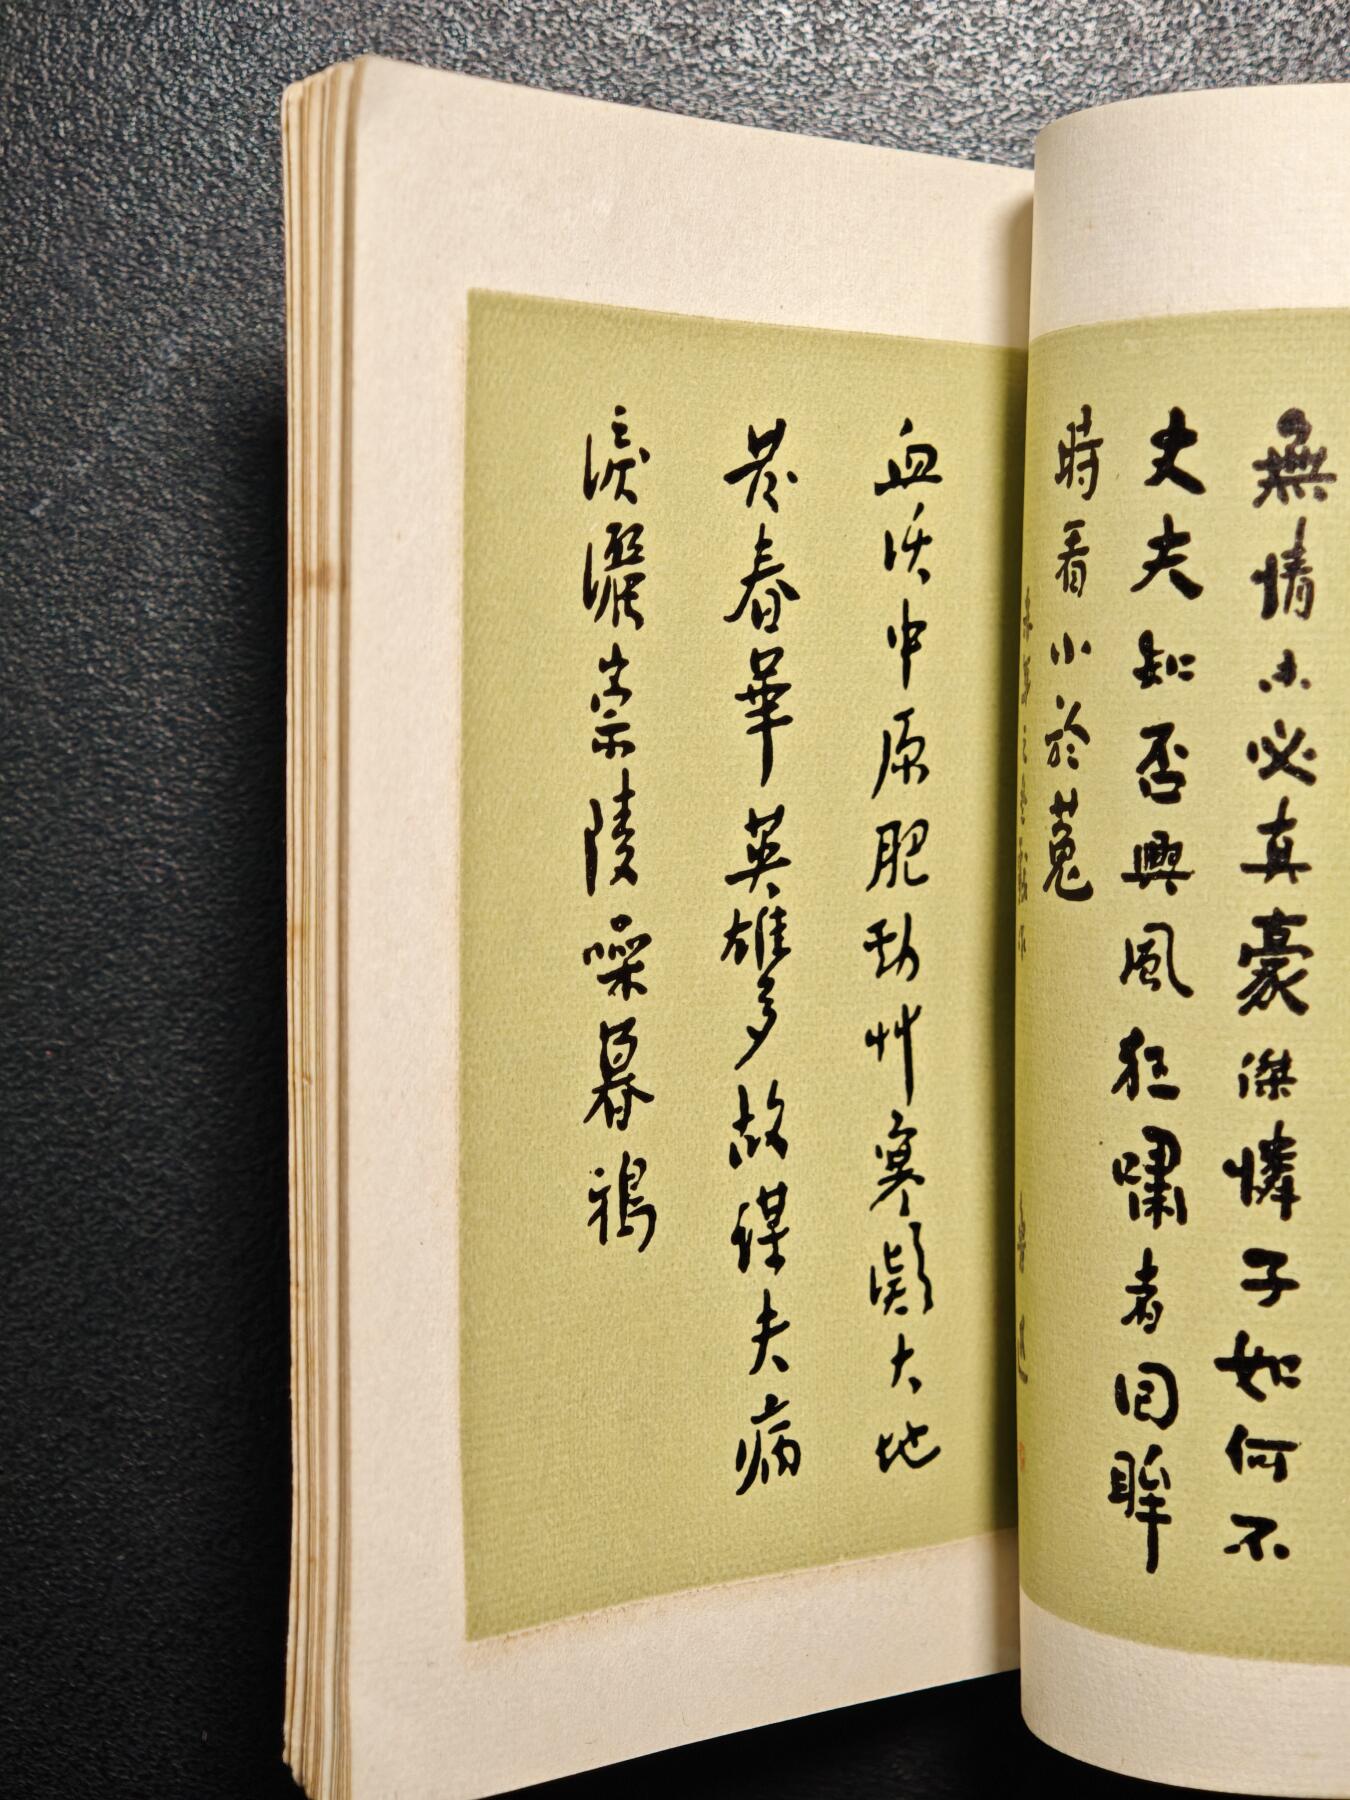 無情未必真豪傑憐子如何不
丈夫知否興風狂嘯者回眸
時看小於菟
血沃中原肥勁艸寒凝大地
發春華英雄多故謀夫病
淚灑崇陵噪暮鴉